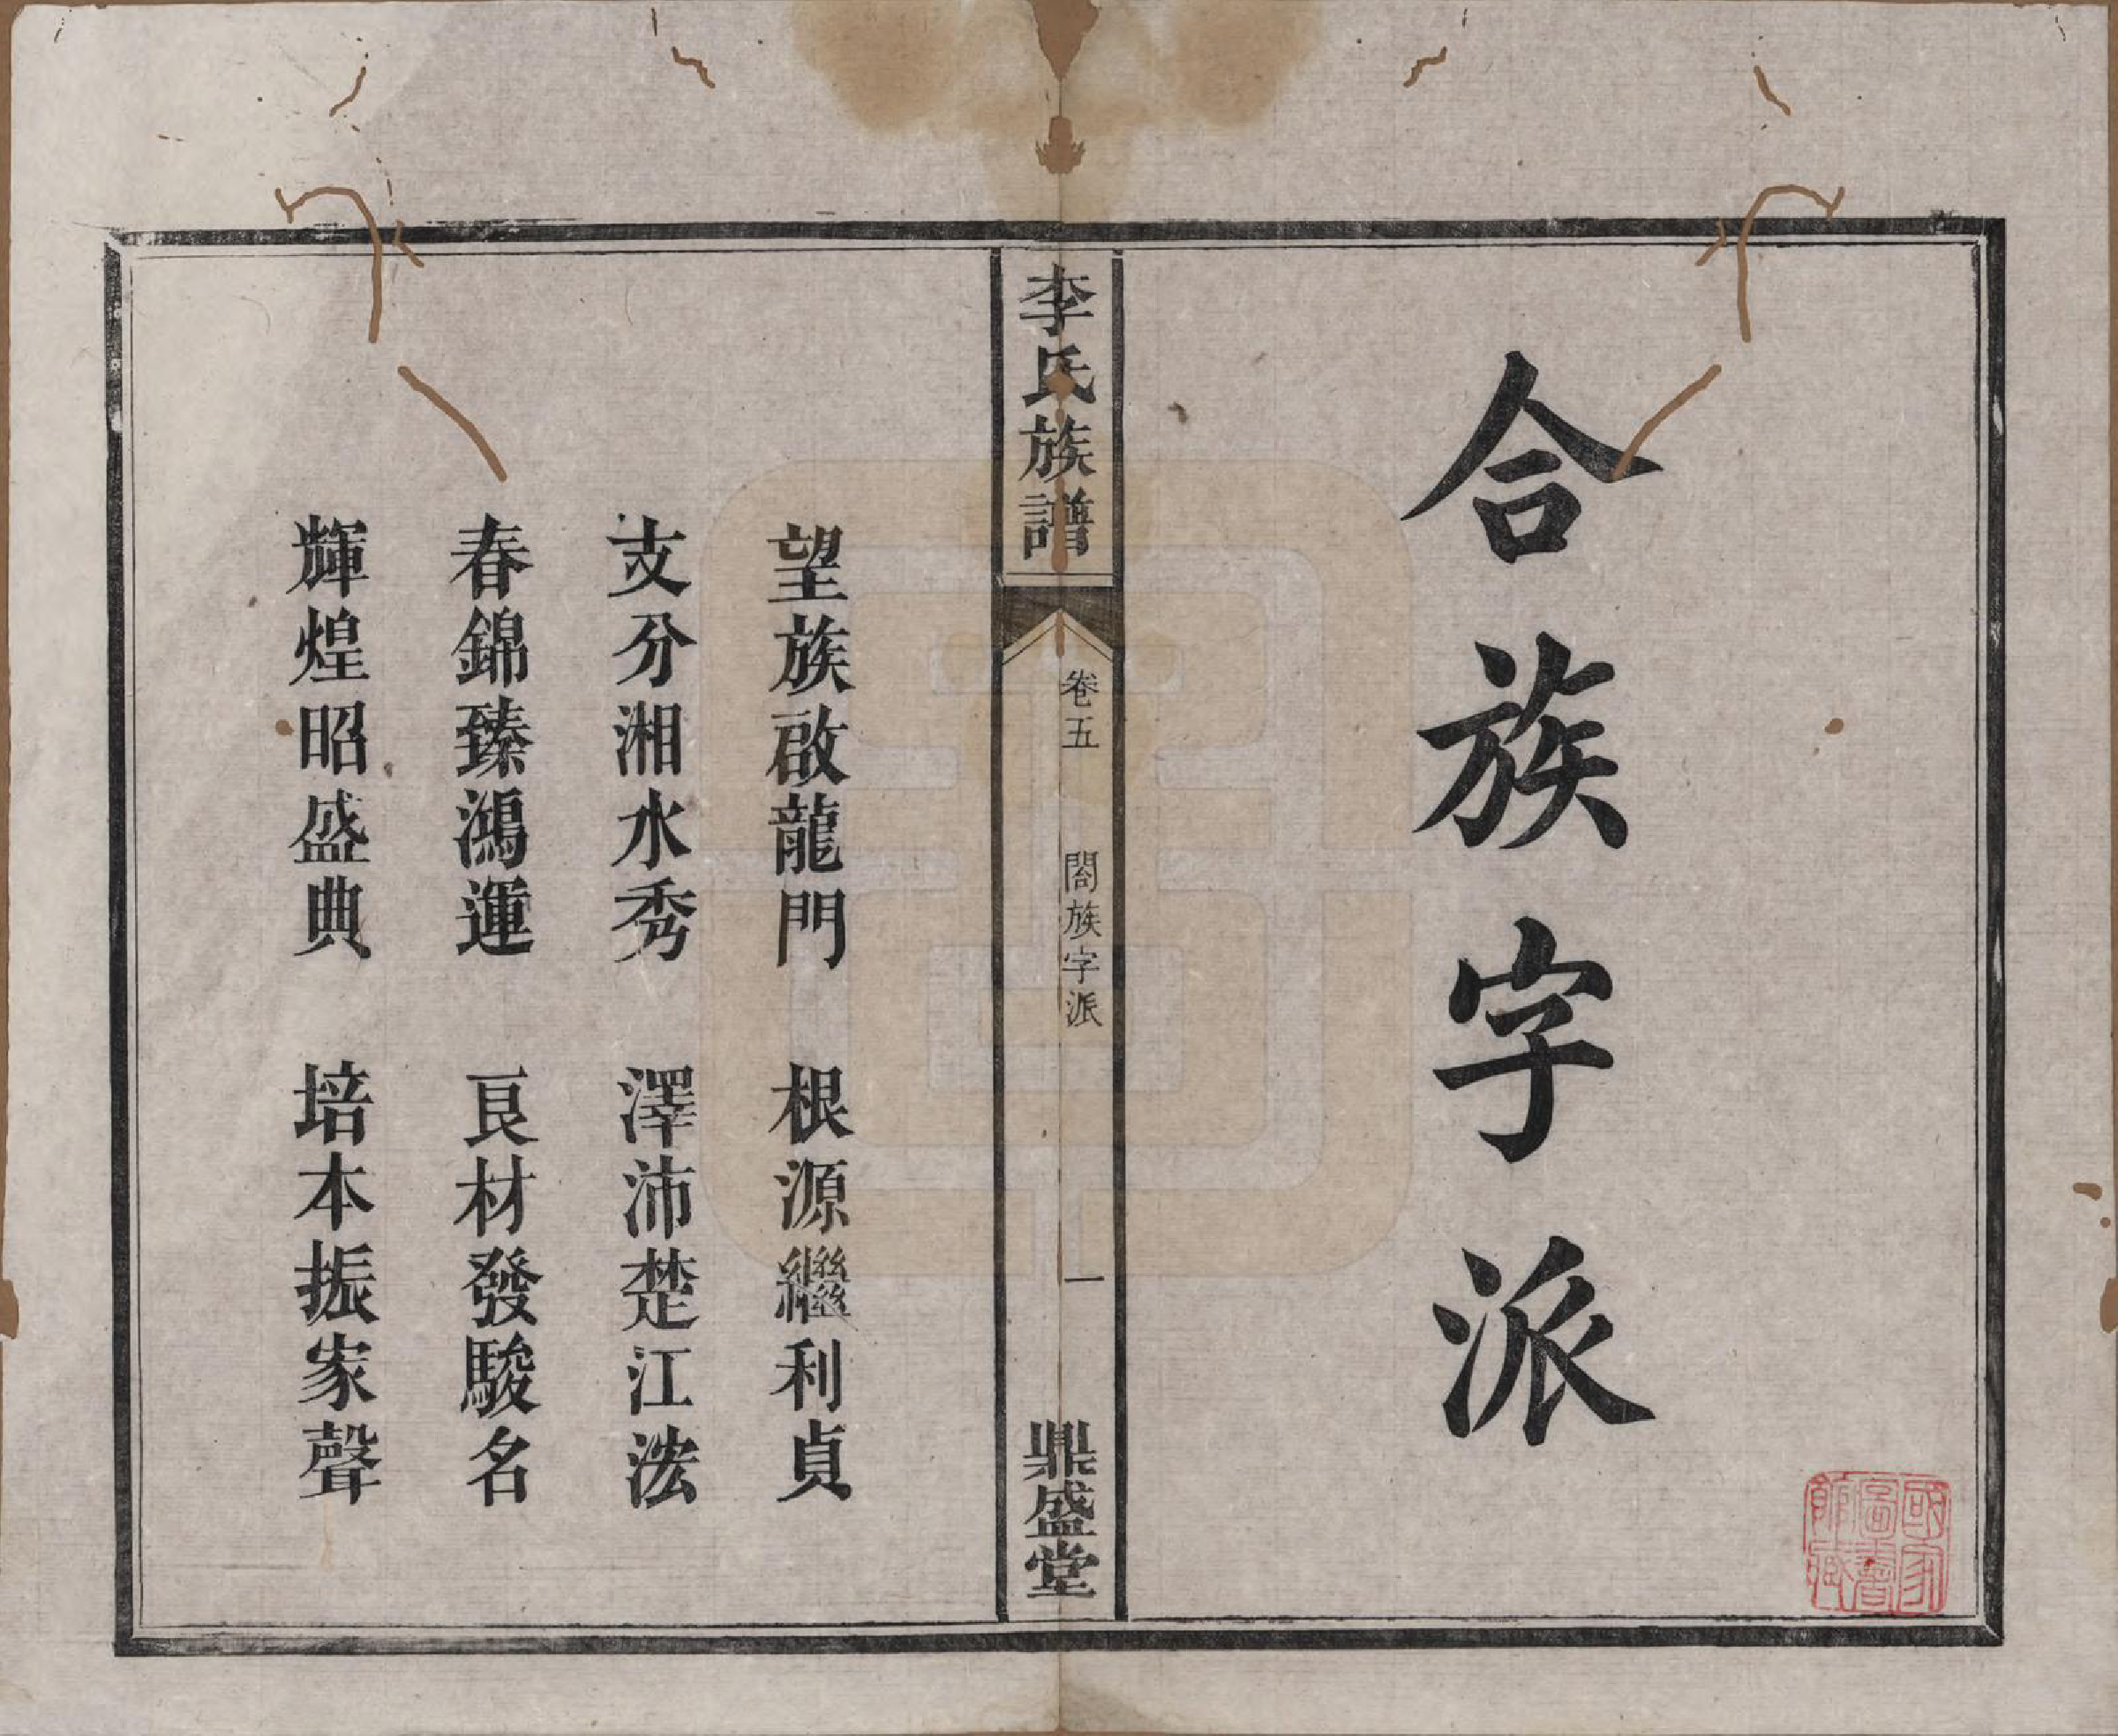 合族字派
李氏族譜
卷五
閤族字派
一
鼎盛堂
望族啟龍門 根源繼利貞
支分湘水秀 澤沛楚江浤
春錦臻鴻運 良材發駿名
輝煌昭盛典 培本振家聲
國家
圖書
館藏